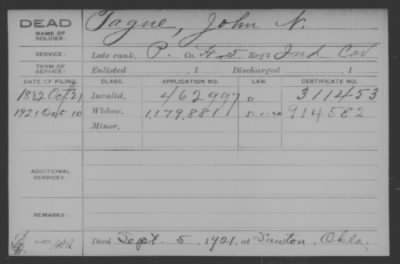 DEAD
NAME OF HOLDER:
Tague, John N.
SERVICE:
Late rank, P. Co. H-5 Reg't Ind Cav
TERM OF SERVICE:
Enlisted , 1 Discharged , 1
DATE OF FILING. CLASS. APPLICATION NO. LAW. CERTIFICATE NO.
1882 Oct 21 Invalid, 462997 G 311453
1921 Oct 10 Widow, 1,179,881 914582
Minor,
ADDITIONAL SERVICES:
REMARKS:
Died Sept. 5, 1921, at Lawton, Okla.